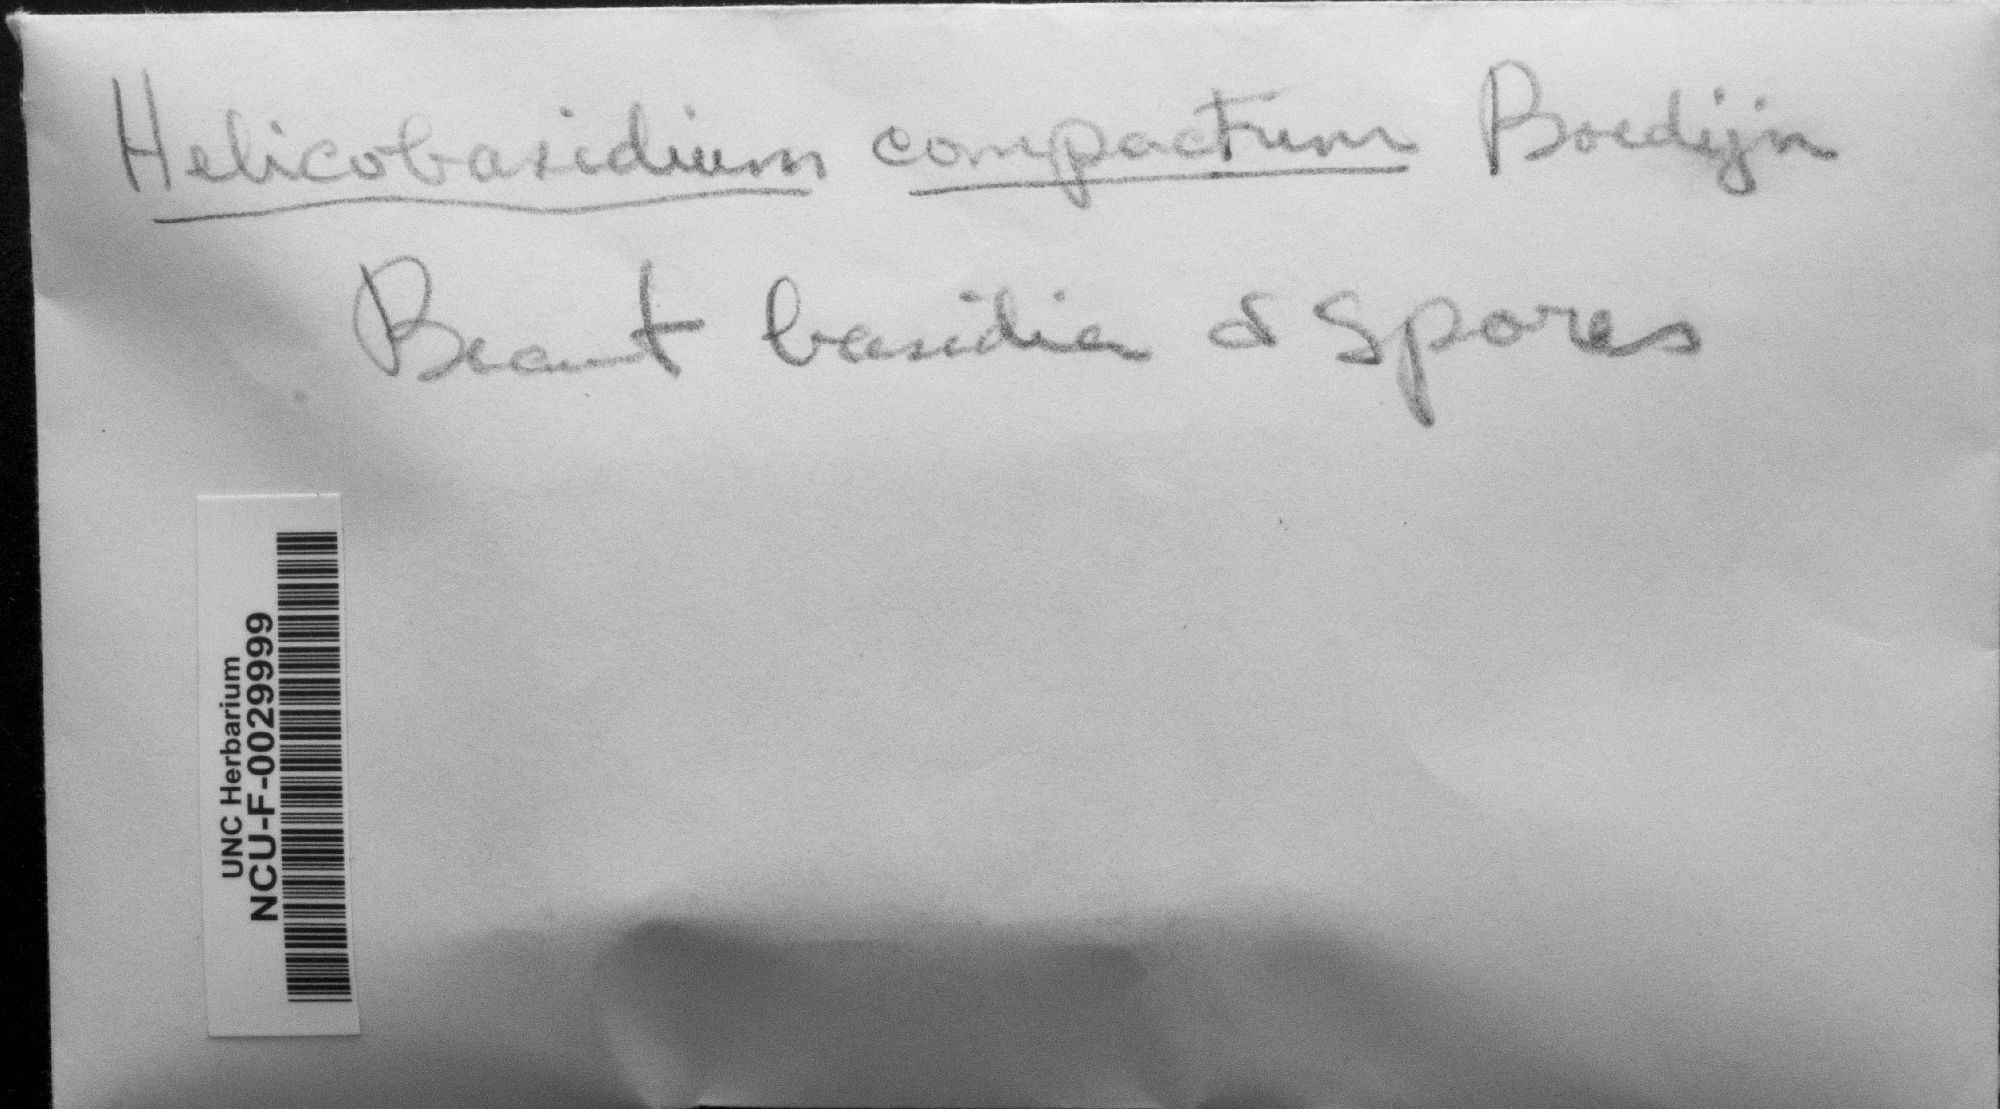 Helicobasidium compactum Boedijn
Beaut basidia & Spores
UNC Herbarium
NCU-F-0029999